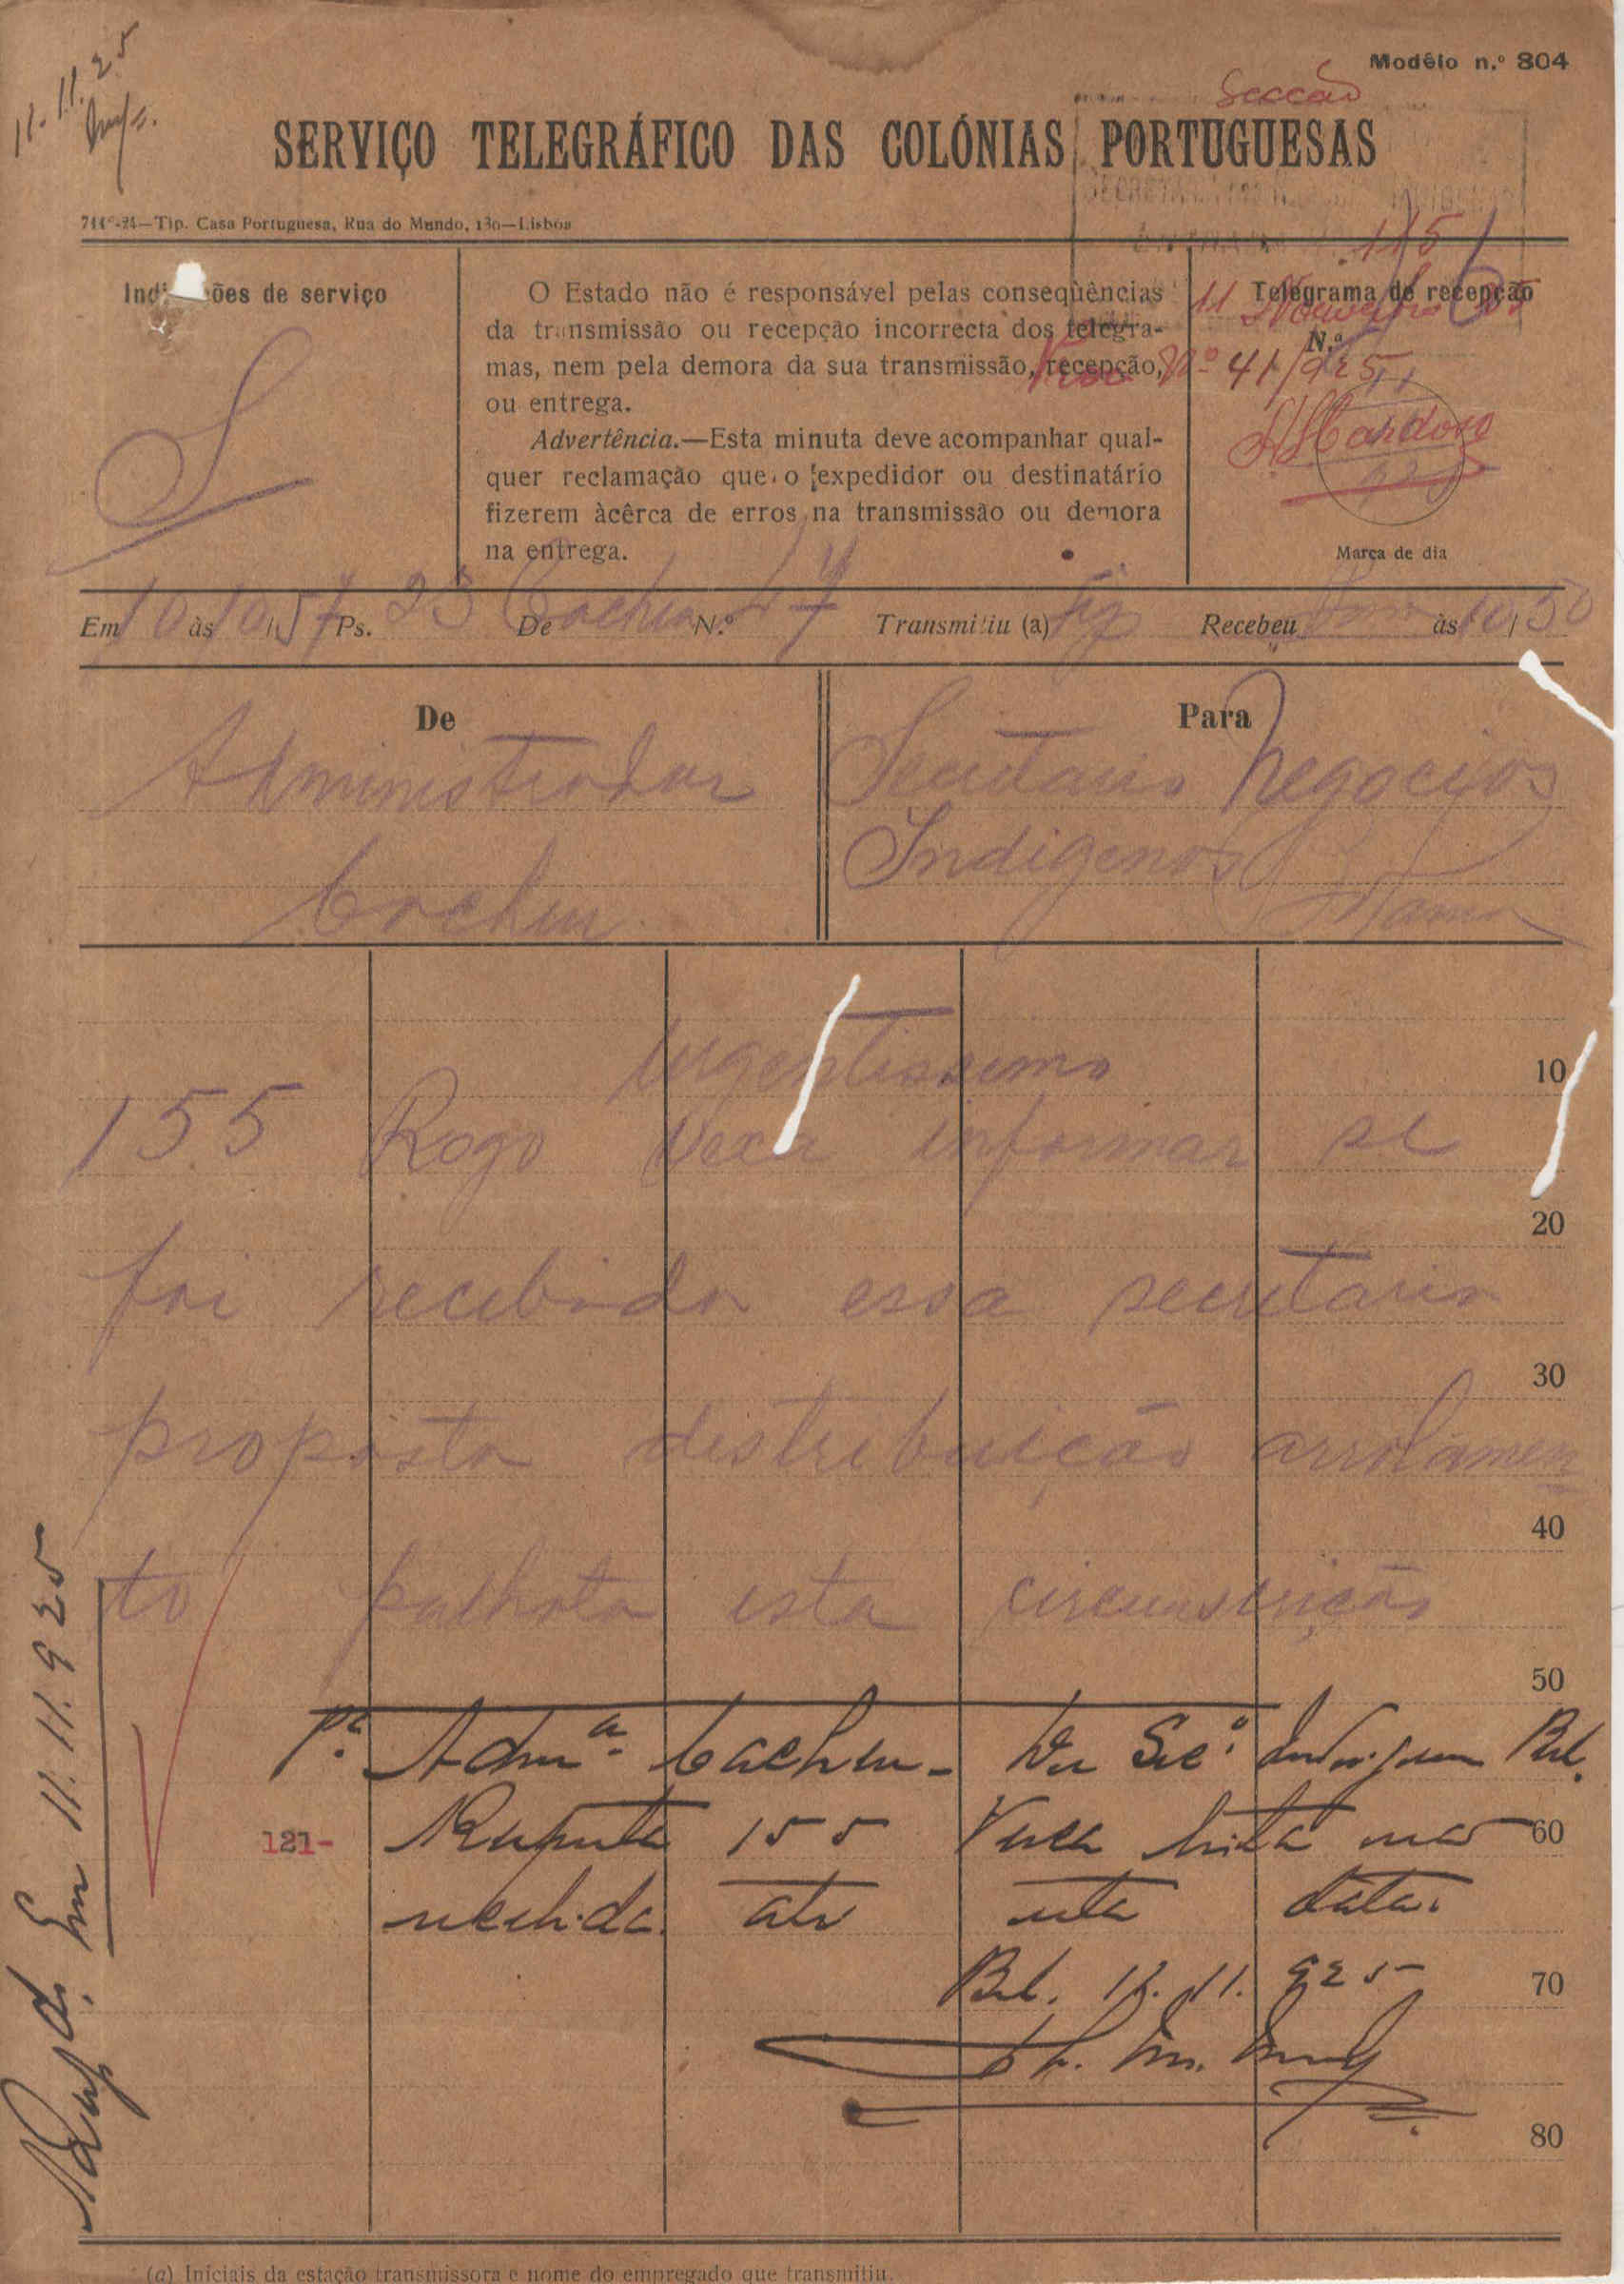 11.11.25
Modêlo n.º 804
Secção
SERVIÇO TELEGRÁFICO DAS COLÓNIAS PORTUGUESAS
Tip. Casa Portuguesa, Rua do Mundo, 130—Lisboa
1151
Indi ões de serviço
S
O Estado não é responsável pelas conseqùências
da transmissão ou recepção incorrecta dos telegra-
mas, nem pela demora da sua transmissão, recepção,
ou entrega.
Advertência.—Esta minuta deve acompanhar qual-
quer reclamação que o expedidor ou destinatário
fizerem àcêrca de erros na transmissão ou demora
na entrega.
Telegrama de recepção
11 Novembro 25
N.º
Nº 41/925
Cardoso
Marca de dia
Em 10 às 10/57 Ps. 23 De Cacheu N.º 47 Transmitiu (a) Recebeu às 10/50
De
Administrador
Cacheu
Para
Secretario Negocios
Indigenas
Urgentissimo
155 Rogo Vexa informar se
foi recebida essa secretaria
proposta destribuição arrolamen
to palhota esta circunscrição
10
20
30
40
50
60
70
80
Pª Admºr. Cacheu - Do Sec.º Indigenas Bol.
121- Resposta 155 Vexa não
recebida até esta data.
Bol. 11.11.925
Resp.do Em 11.11.925
(a) Iniciais da estação transmissora e nome do empregado que transmitiu.